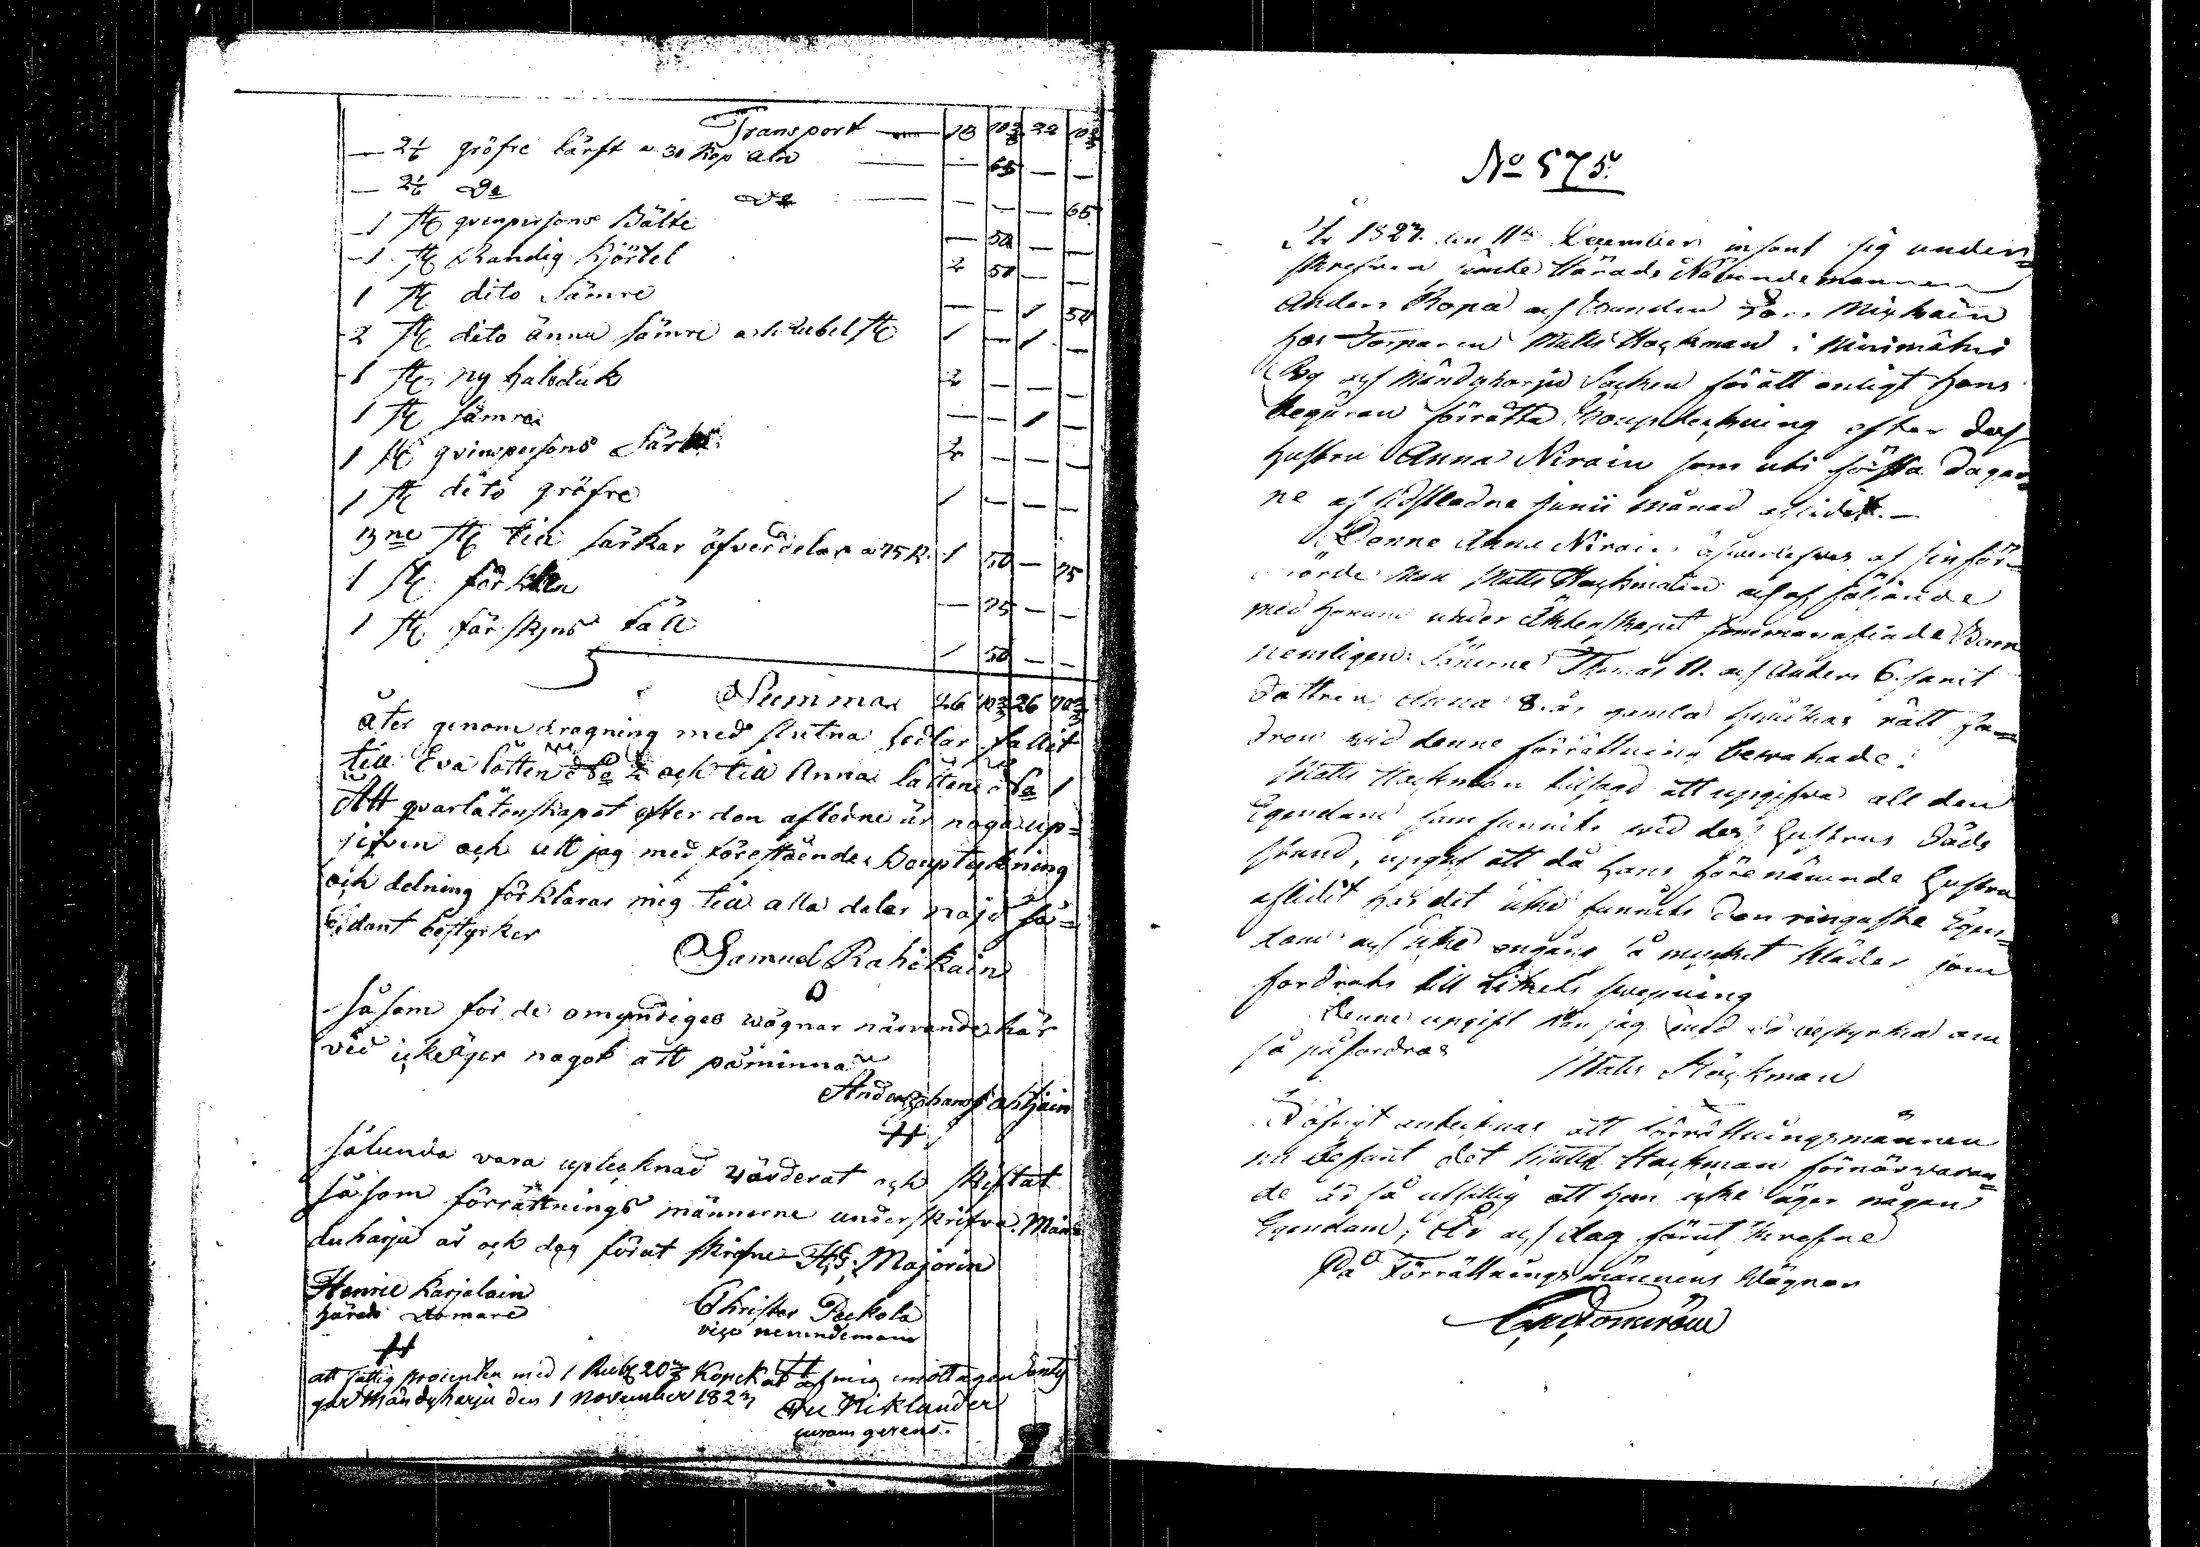 Transport — 18 10 2/3 22 10 2/3
— 2 1/6 gröfre lärft a 30 Kop aln — — 65 — —
— 2 1/6 Do Do — — — — 65
1 st qvinpersons Bälte — 50 — —
1 st Randig Kjörtel 2 50 — —
1 st dito Sämre — — 1 50
2 st dito ännu sämre a 1 rubel st 1 — 1 —
1 st ny halsduk 2 — — —
1 st sämre — — 1 —
1 st qvinspersons Särk 2 — — —
1 st dito gröfre 1 — — —
3ne st till särkar öfverdelar a 75 k. 1 50 — 75
1 st förkläde — 75 — —
1 st fårskins fäll 1 50 — —
Summa 26 10 2/3 26 10 2/3
åter genom dragning med slutna sedlar fallit
till Eva lotten No 2 och till Anna lotten No 1
Att qvarlåtenskapet efter den aflidne är noga up=
gifven och att jag med förestående Bouptekning
och delning förklarar mig till alla delar nöjd så=
dant bestyrker
Samuel Rahikain
Såsom för de omyndiges wägnar närvande här
vid icke äger nagot att påminna
Anders Johansson
Sålunda vara uptecknad värderat och skiftat
såsom förrättnings männerne underskrifva. Män
duharju år och dag förut skrefne H. G. Majorin
Henric Karjalain
härads domare
Christer Peckola
viçe nemndeman
att fattig procenten med 1 Rub 20 Kopek af mig emottagen
Mändyharju den 1 November 1827
Niklander
curam gerens.
No 575.
År 1827. den 11te December infant sig under=
skrefven jemte Härads Nämndemannen
Anders Ropa
hos Torparen Matts Hackman i
By och Mändyharju Socken för att enligt hans
begäran förrätta Bouptekning efter dess
hustru Anna Nirain som uti första dagar=
ne af sidstledne junii månad aflidit. —
Denne Anna Nirain öfverlefves af sin för=
nörde man Matts Hackman och af följande
med honom under Äktenskapet sammanaflade Barn
nemligen: Sönerne Thomas 11. och Anders 6. samt
dottren Anna 8. år gamla hvilkas rätt fa=
dren wid denne förrättning bevakade.
Matts Hackman tilsagd att upgifva all den
Egendom som funnits wid dess hustrus döds
stund, upgaf att då hans förenämnde hustru
aflidit har det icke funnits den ringaste Egen=
dom och icke engång så mycket kläder som
fordrats till Likets svepning
Denne upgift kan jag med Ed bestyrka om
så påfordras
Matts Hackman
I öfrigt antecknas att förrättningsmännen
nu befant det Matts Hackman förnärvaran=
de är så utfattig att han icke äger någon
Egendom; År och dag förut skrefne
På Förrättningsmännens Wägnar